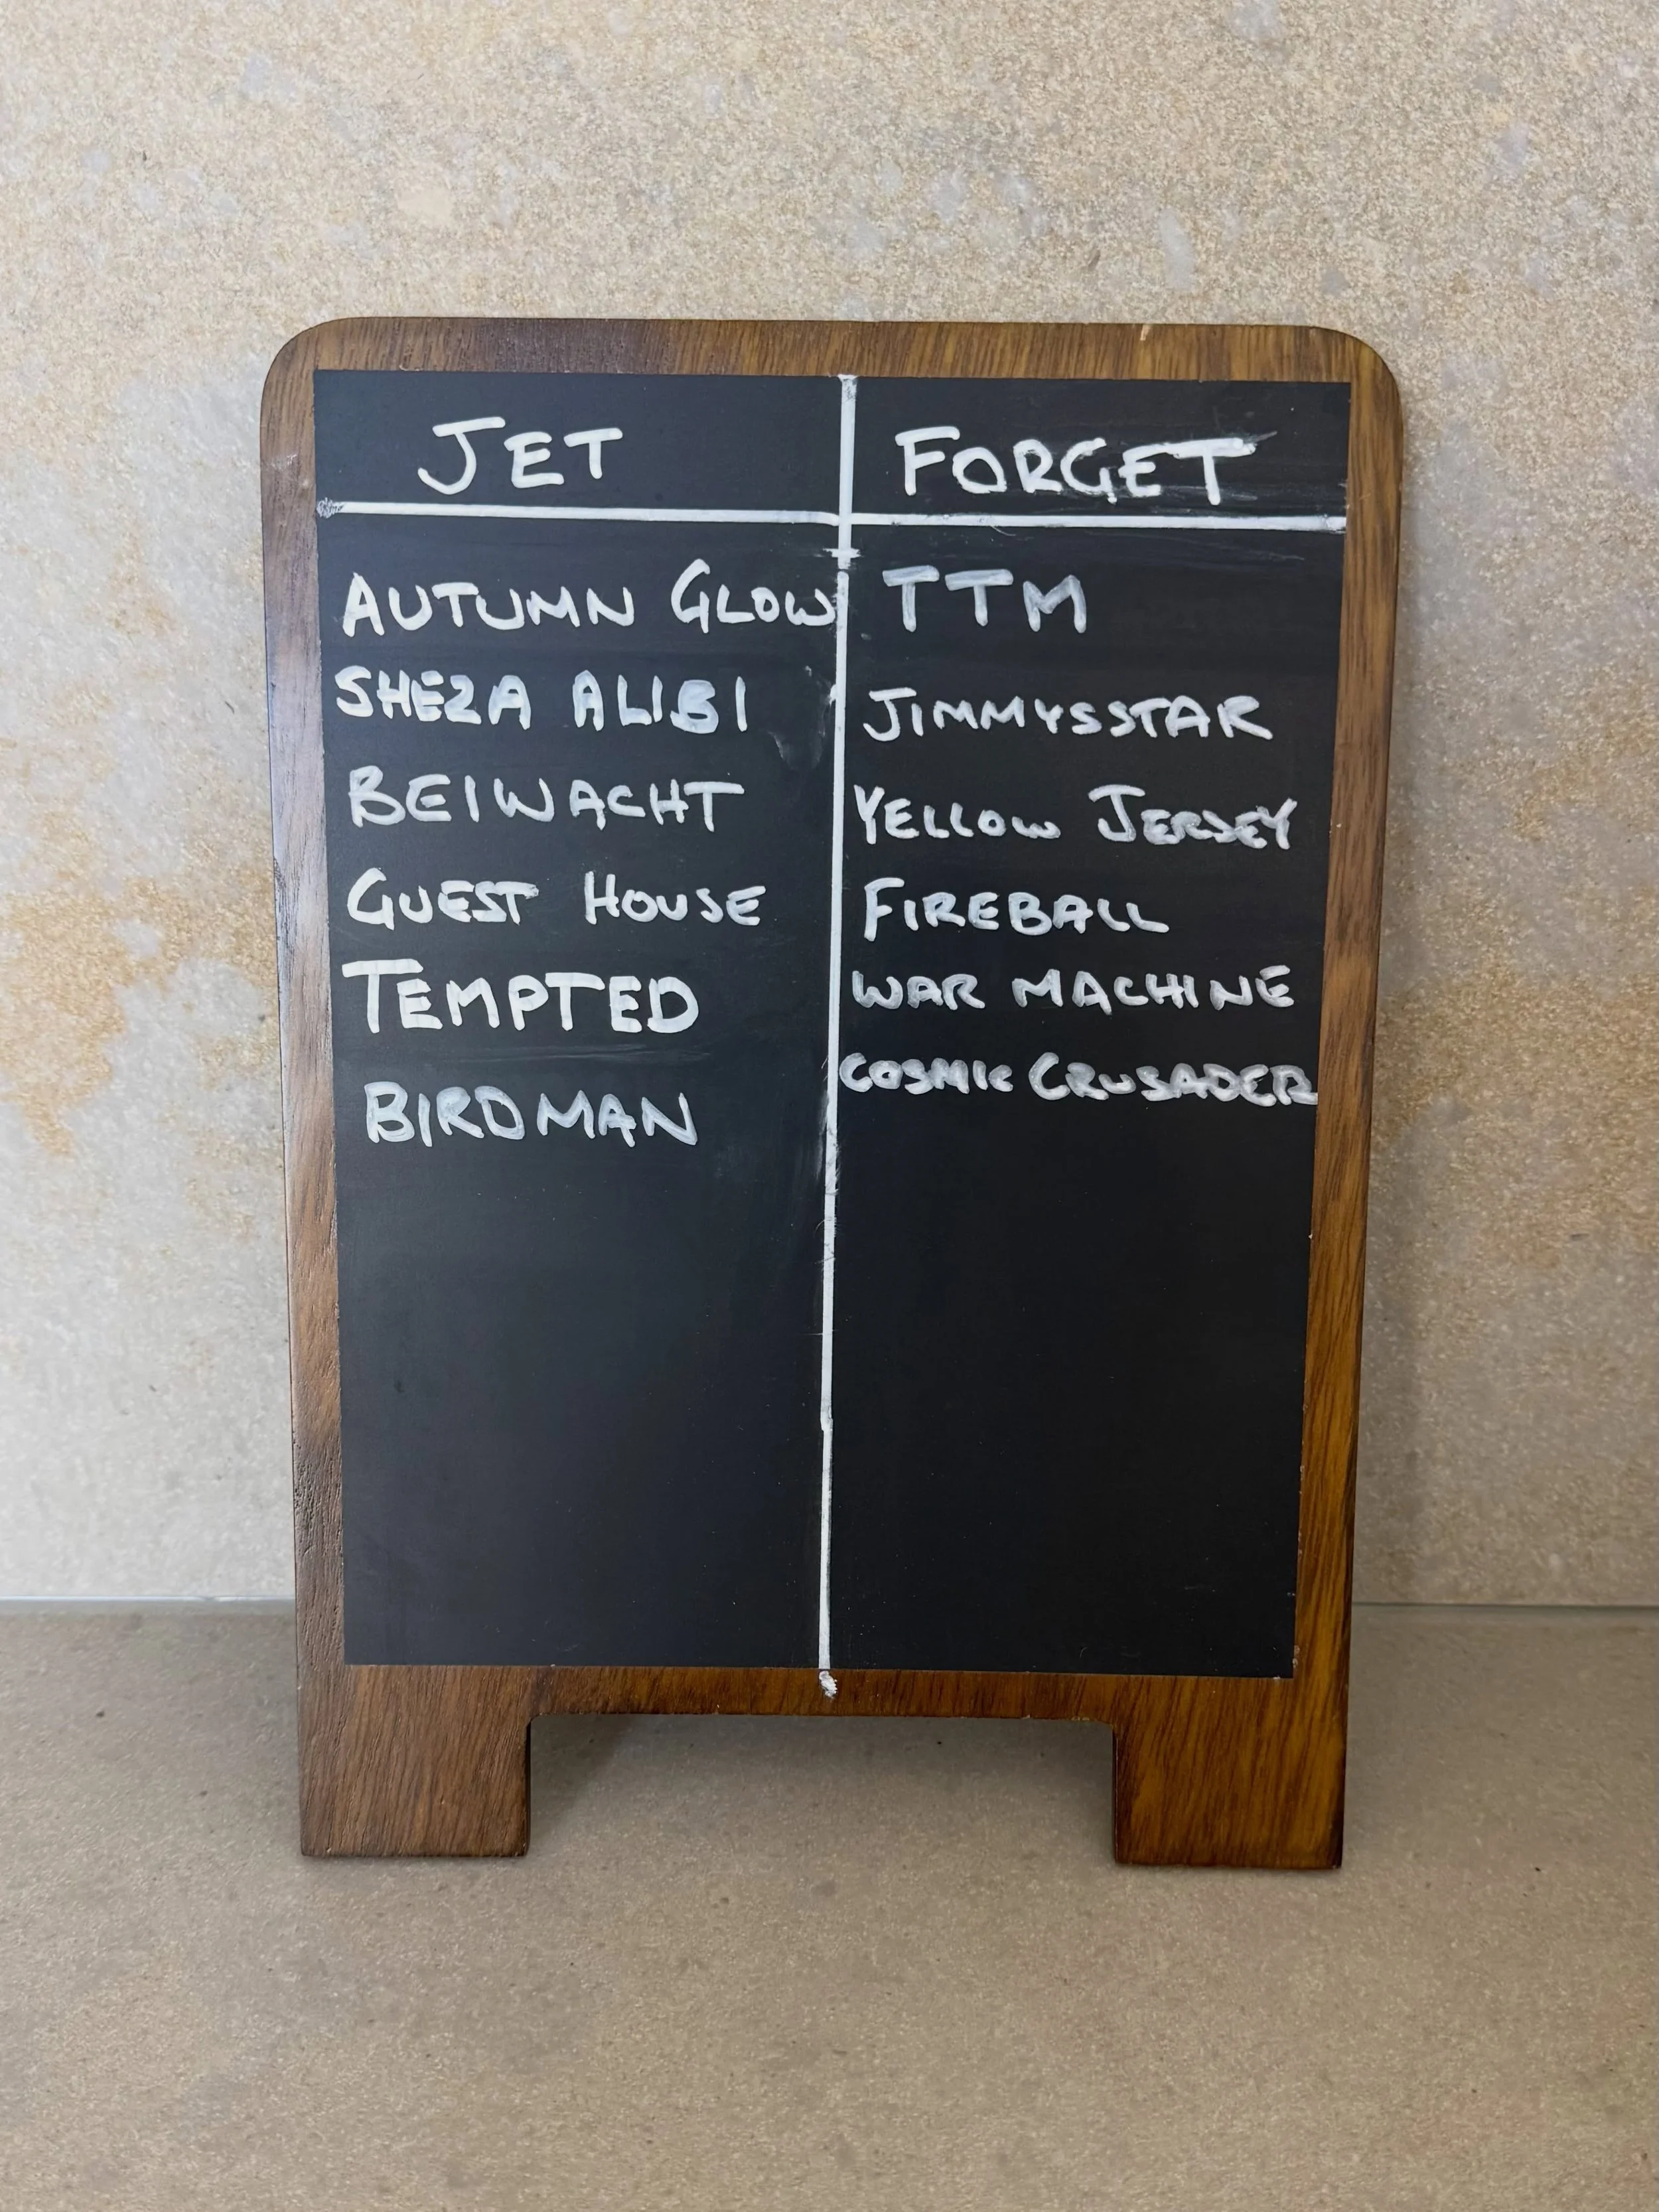 JET
AUTUMN GLOW
SHEZA ALIBI
BEIWACHT
GUEST HOUSE
TEMPTED
BIRDMAN
FORGET
TTM
JIMMYSSTAR
YELLOW JERSEY
FIREBALL
WAR MACHINE
COSMIC CRUSADER